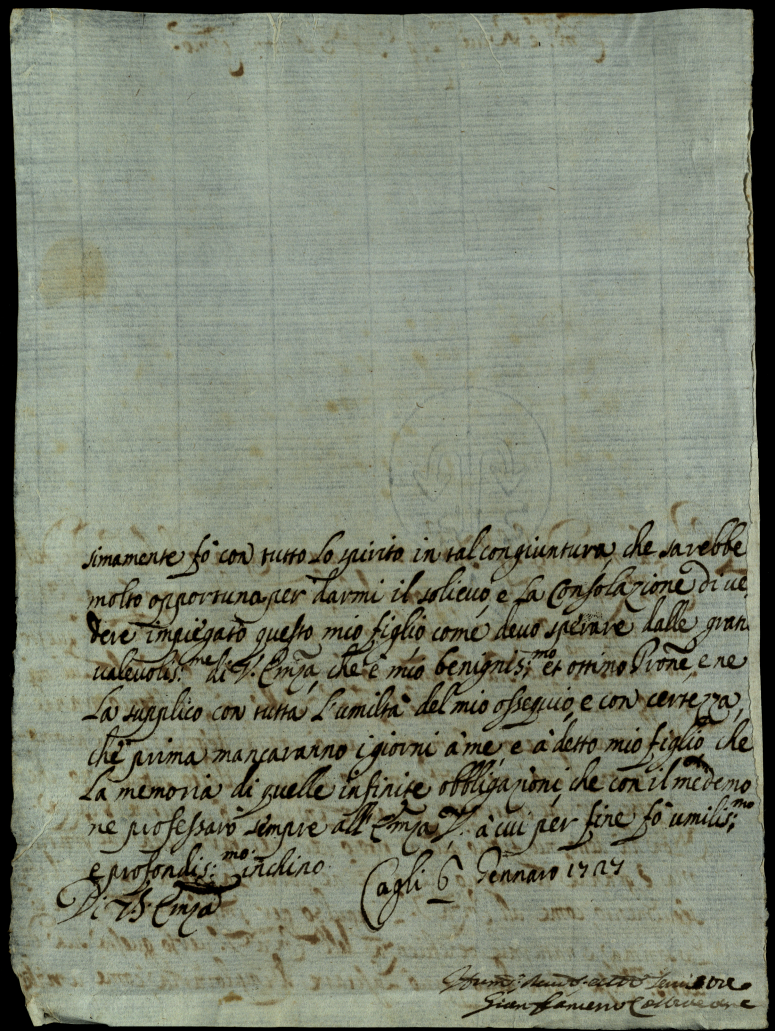 simamente fò con tutto lo spirito in tal congiuntura, che sarebbe
molto opportuna per darmi il solievo, e la Consolazione di ve,
dere impiegato questo mio figlio, come devo sperare dalle grati
valevolis:me di V: Emza, che è mio benignis:mo et ottimo Prone, e ne
la supplico con tutta l'umiltà del mio ossequio, e con certezza,
che prima mancaranno i giorni à me, e à detto mio figlio che
la memoria di quelle infinite obbligazioni, che con il medemo
ne professarò sempre all'Emza V. à cui per fine fò umilis:mo
e profondis:mo inchino.
Cagli 6 Gennaro 1727
Di V: Emza